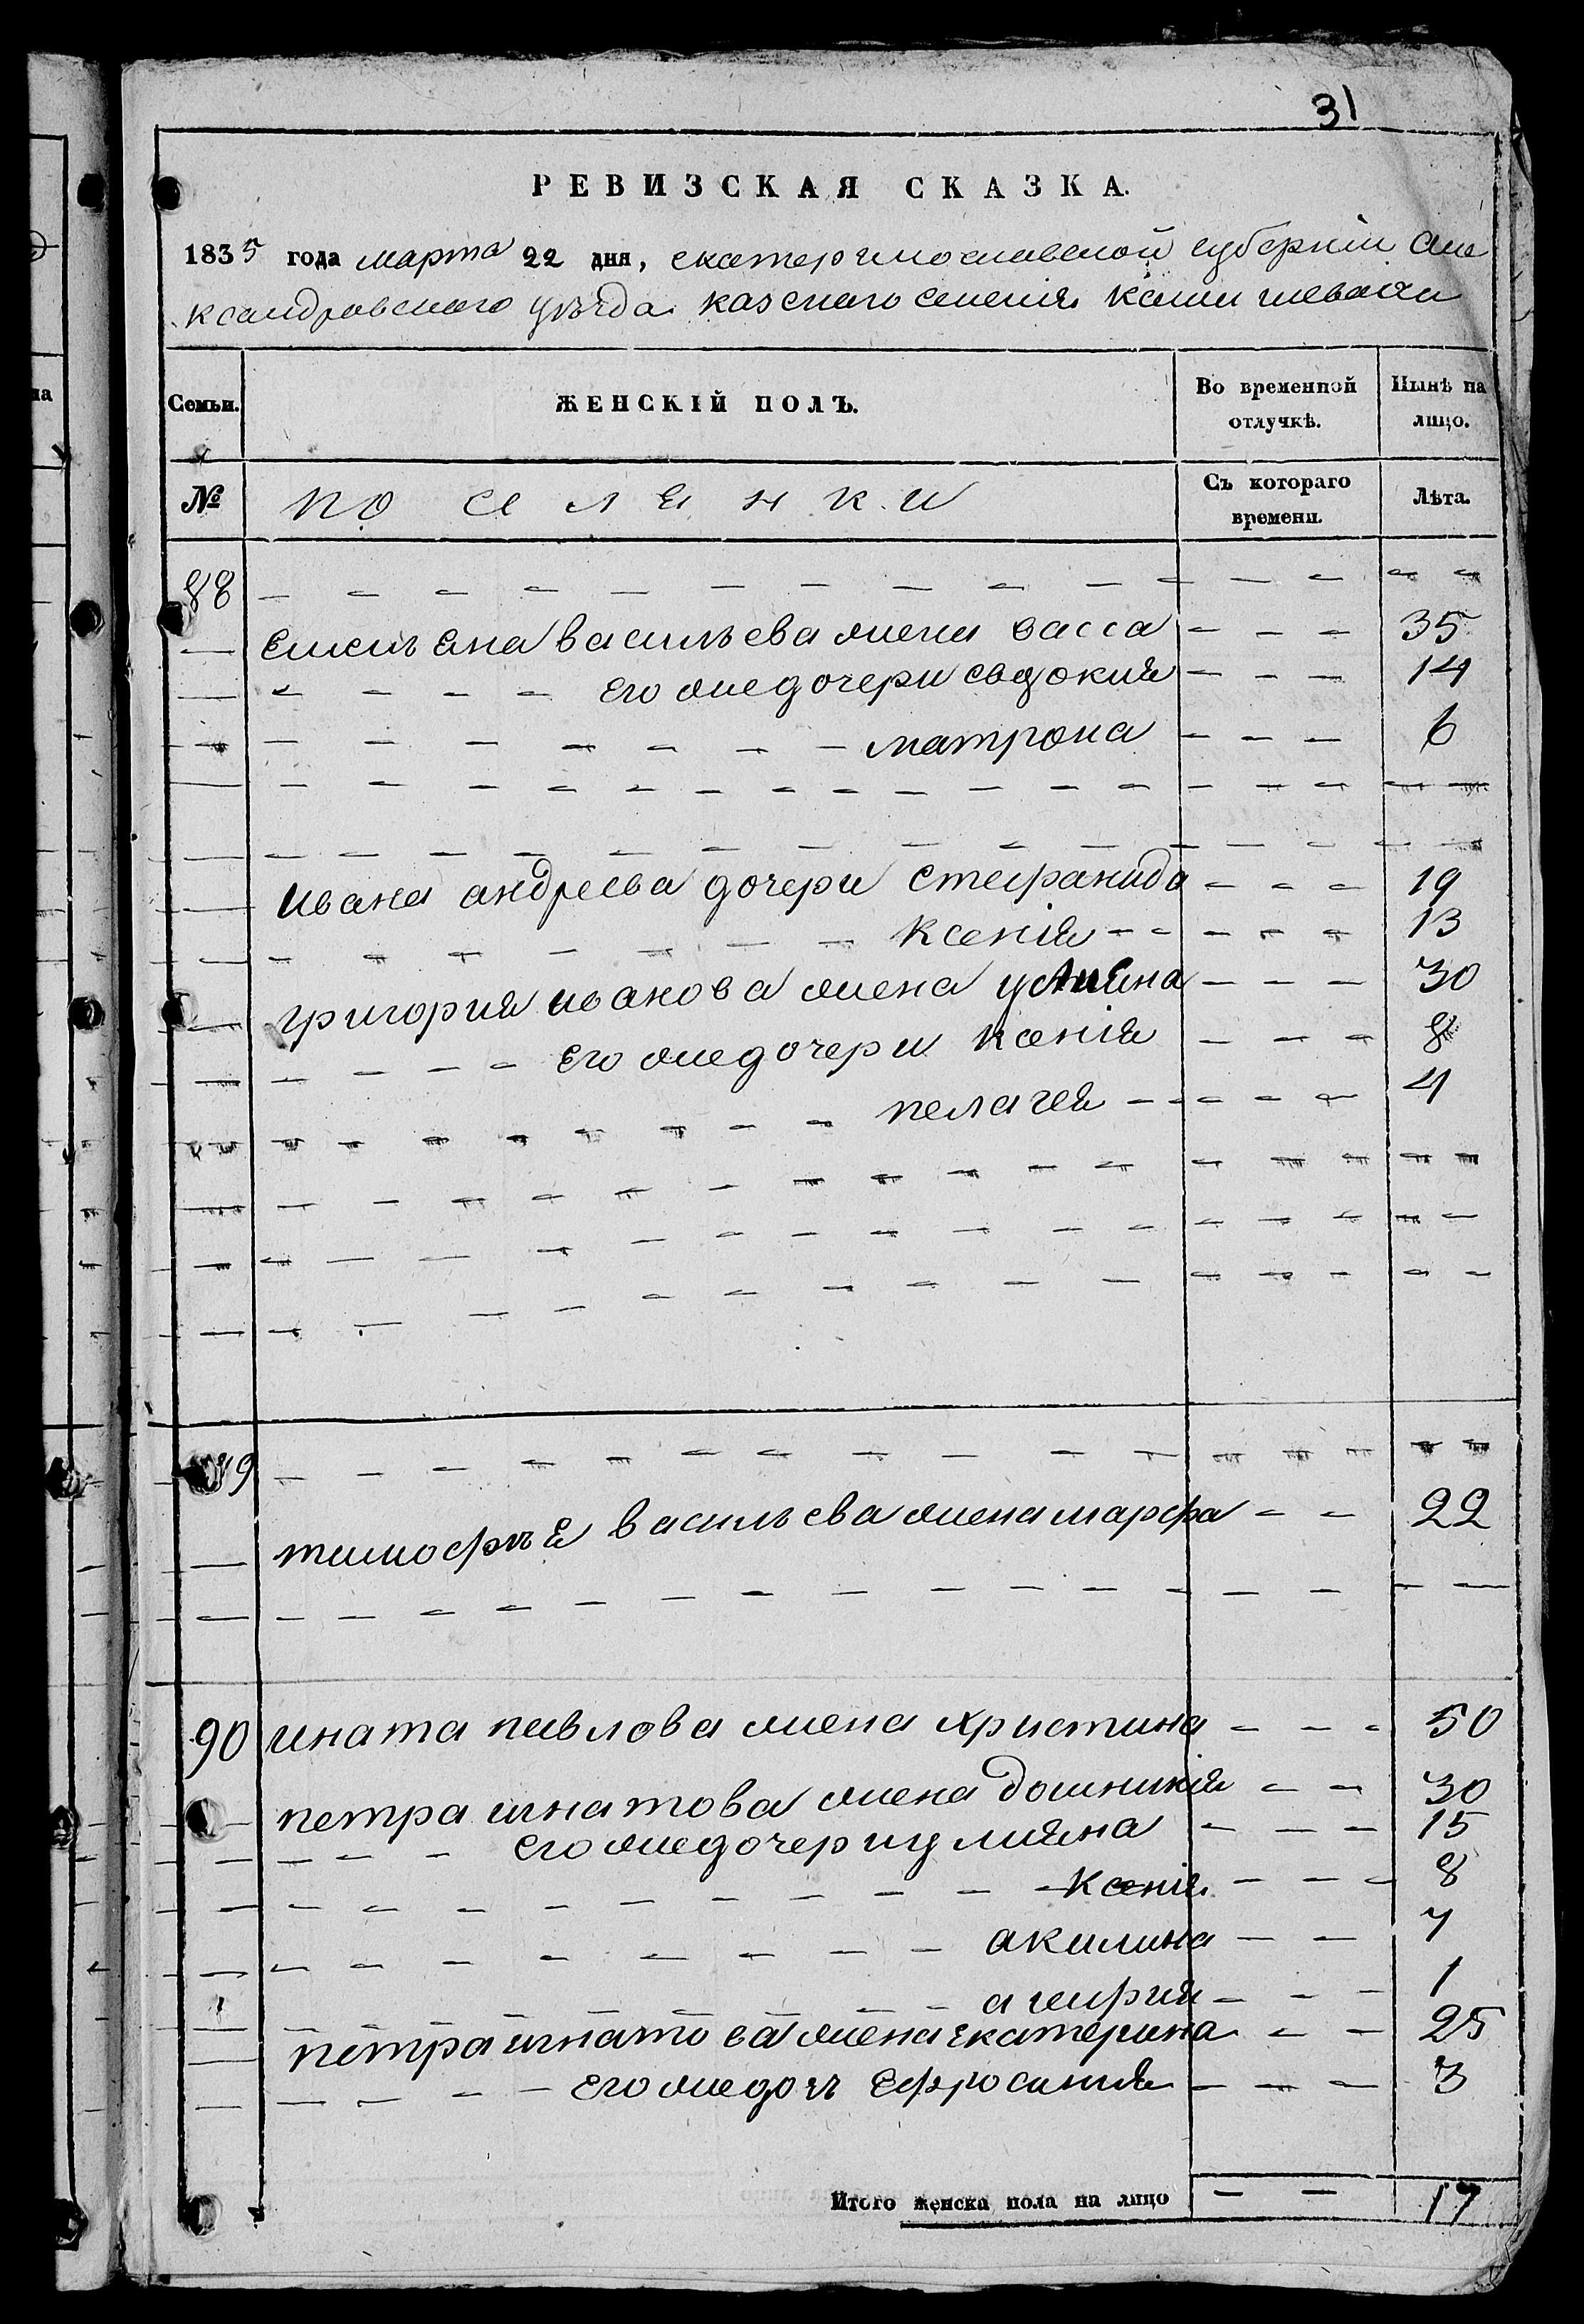 31
РЕВИЗСКАЯ СКАЗКА.
1835 года марта 22 дня, екатеринославской губернии Але
ксандровского уѣзда казеного селения Камышевахи
Семьи. ЖЕНСКІЙ ПОЛЪ. Во временной отлучкѣ. Нынѣ на лицо.
№ поселенки Съ котораго времени. Лѣта.
88
емельяна васильева жена васса 35
его же дочери евдокия 14
матрона 6
ивана андреева дочери стефанида 19
ксения 13
григория иванова жена улияна 30
его же дочери ксения 8
пелагея 4
89
тимофѣя васильева жена марфа 22
90 игната павлова жена христина 50
петра игнатова жена домникия 30
его же дочери улияна 15
ксения 8
акилина 7
1
петра игнатова жена екатерина 25
его же дочь Ефросиния 3
Итого женска пола на лицо 17